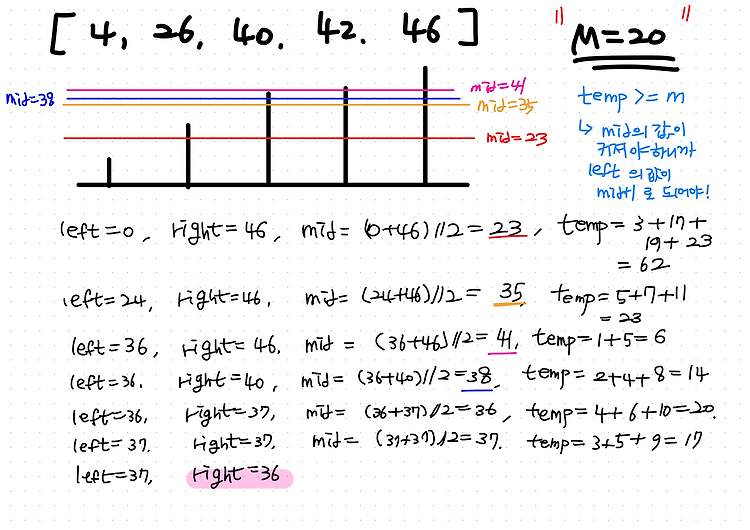 [ 4, 26, 40. 42. 46 ]
" M=20 "
mid=41
mid=38
mid=35
mid=23
temp >= m
↳ mid의 값이
커져야하니까
left 의 값이
mid+1 로 되어야!
left=0, right=46, mid= (0+46)//2 = 23, temp= 3+17+
19+23
= 62
left=24, right=46, mid= (24+46)//2 = 35, temp=5+7+11
= 23
left=36, right=46. mid = (36+46)//2= 41, temp=1+5=6
left=36. right=40, mid= (36+40)//2=38, temp= 2+4+8=14
left=36, right=37, mid= (36+37)//2=36, temp=4+6+10=20.
left=37. right=37, mid= (37+37)//2=37. temp=3+5+9=17
left=37, right=36